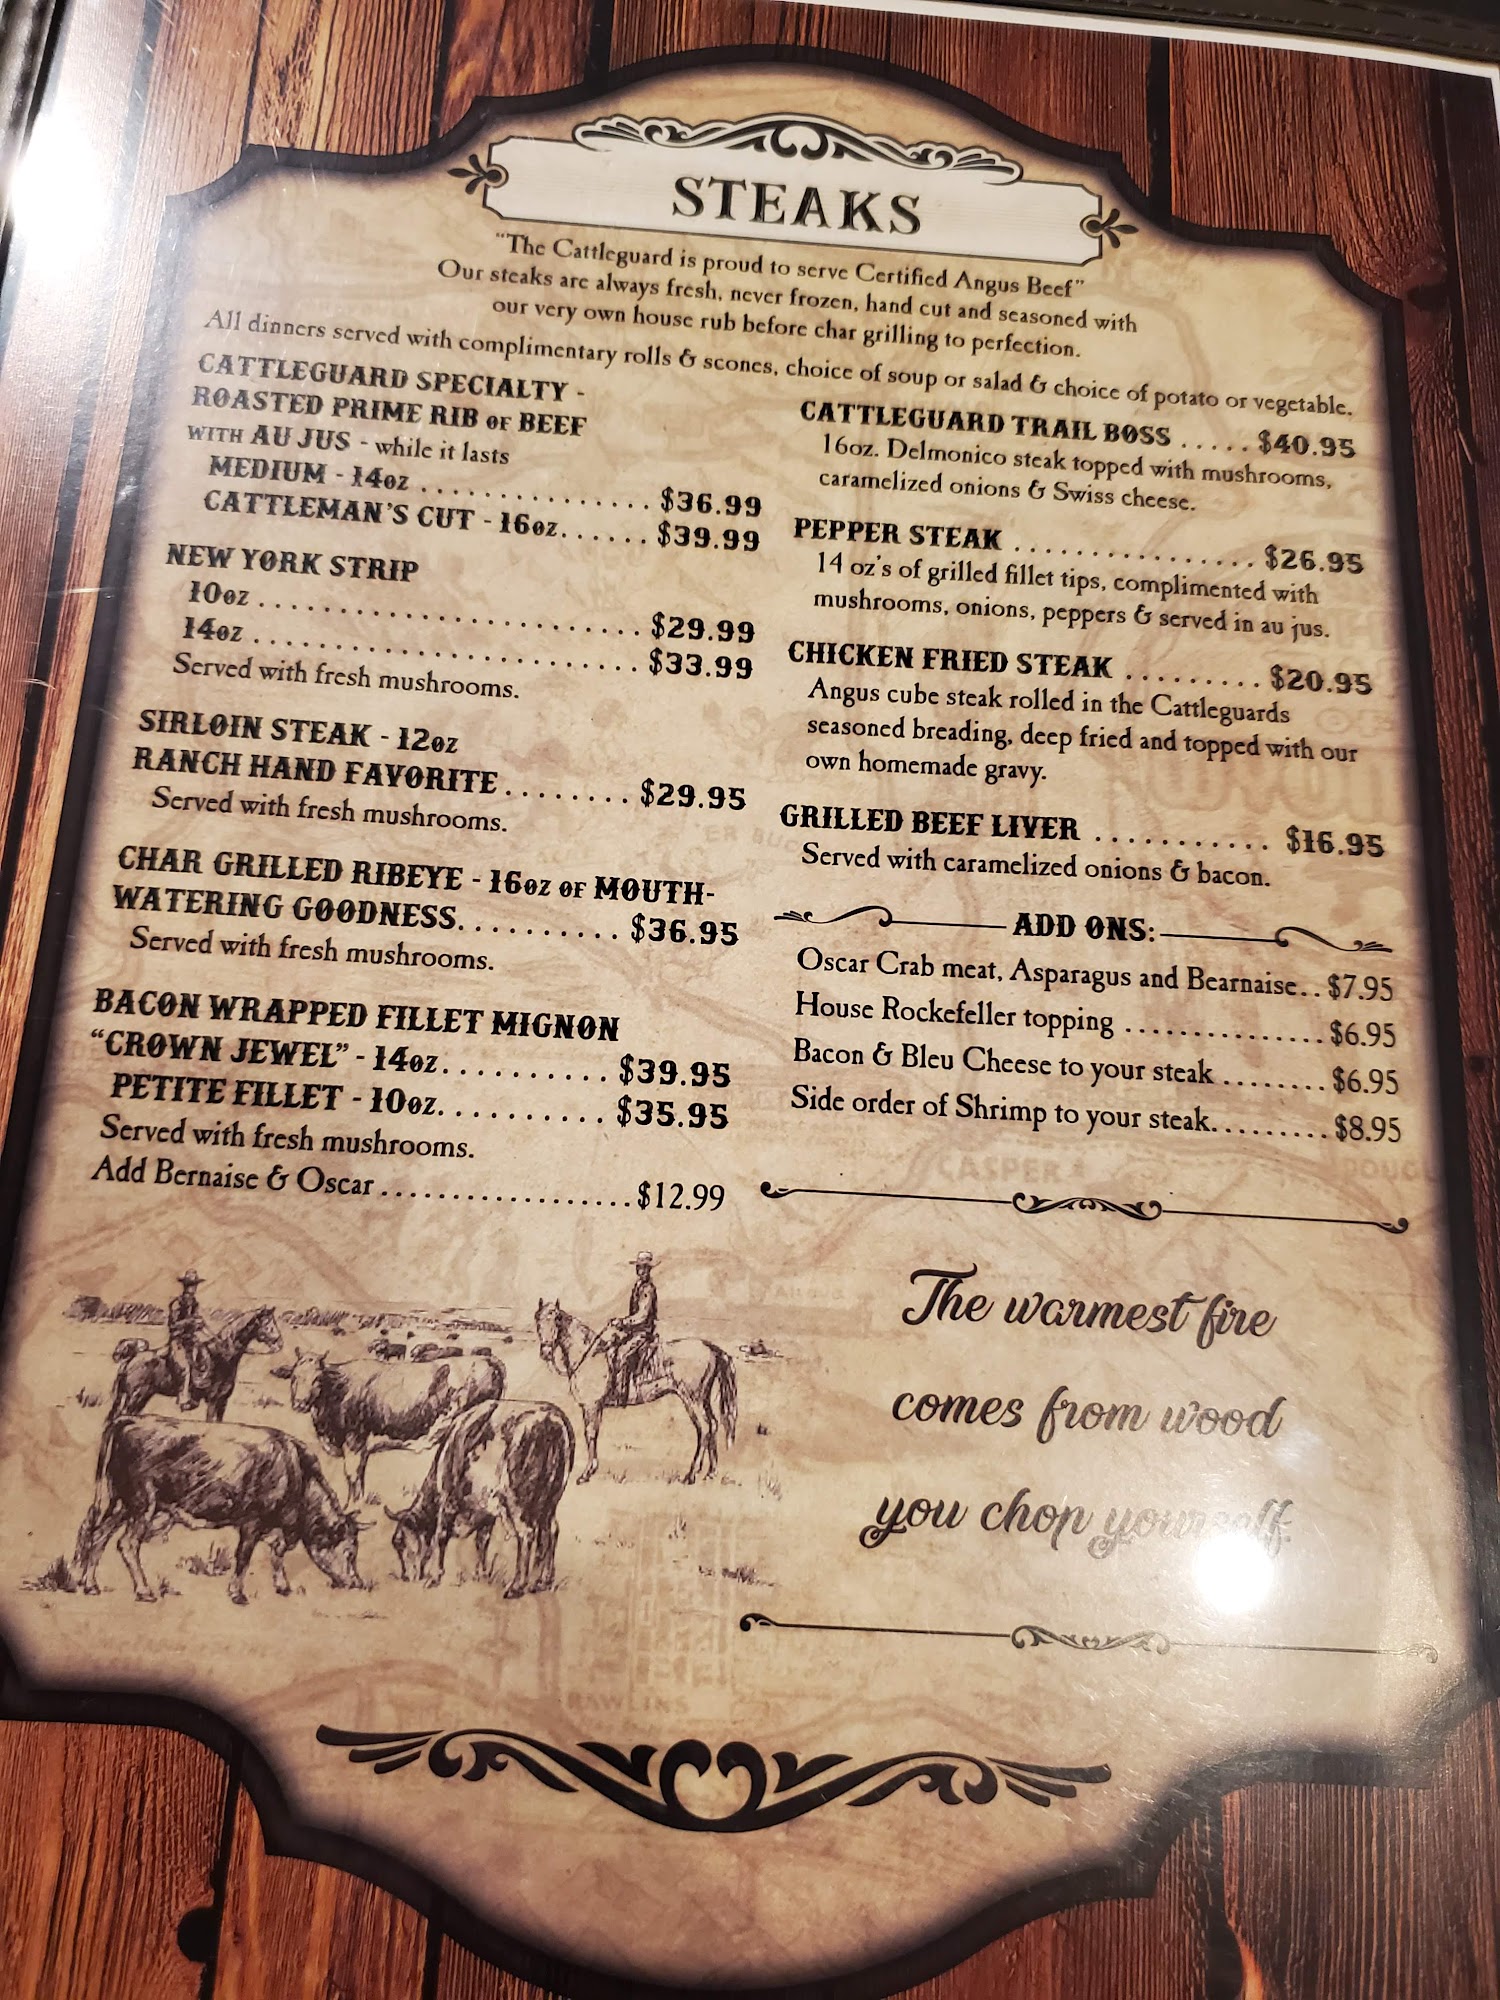 STEAKS
"The Cattleguard is proud to serve Certified Angus Beef"
Our steaks are always fresh, never frozen, hand cut and seasoned with
our very own house rub before char grilling to perfection.
All dinners served with complimentary rolls & scones, choice of soup or salad & choice of potato or vegetable.
CATTLEGUARD SPECIALTY -
ROASTED PRIME RIB OF BEEF
WITH AU JUS - while it lasts
MEDIUM - 14oz ............... $36.99
CATTLEMAN'S CUT - 16oz...... $39.99
NEW YORK STRIP
10oz ......................... $29.99
14oz ......................... $33.99
Served with fresh mushrooms.
SIRLOIN STEAK - 12oz
RANCH HAND FAVORITE........ $29.95
Served with fresh mushrooms.
CHAR GRILLED RIBEYE - 16oz OF MOUTH-
WATERING GOODNESS.......... $36.95
Served with fresh mushrooms.
BACON WRAPPED FILLET MIGNON
"CROWN JEWEL" - 14oz.......... $39.95
PETITE FILLET - 10oz.......... $35.95
Served with fresh mushrooms.
Add Bernaise & Oscar ..................$12.99
CATTLEGUARD TRAIL BOSS ..... $40.95
16oz. Delmonico steak topped with mushrooms,
caramelized onions & Swiss cheese.
PEPPER STEAK ................ $26.95
14 oz's of grilled fillet tips, complimented with
mushrooms, onions, peppers & served in au jus.
CHICKEN FRIED STEAK ......... $20.95
Angus cube steak rolled in the Cattleguards
seasoned breading, deep fried and topped with our
own homemade gravy.
GRILLED BEEF LIVER ........... $16.95
Served with caramelized onions & bacon.
ADD ONS:
Oscar Crab meat, Asparagus and Bearnaise.. $7.95
House Rockefeller topping ..............$6.95
Bacon & Bleu Cheese to your steak ........$6.95
Side order of Shrimp to your steak.........$8.95
CASPER
The warmest fire
comes from wood
you chop yourself.
RAWLINS